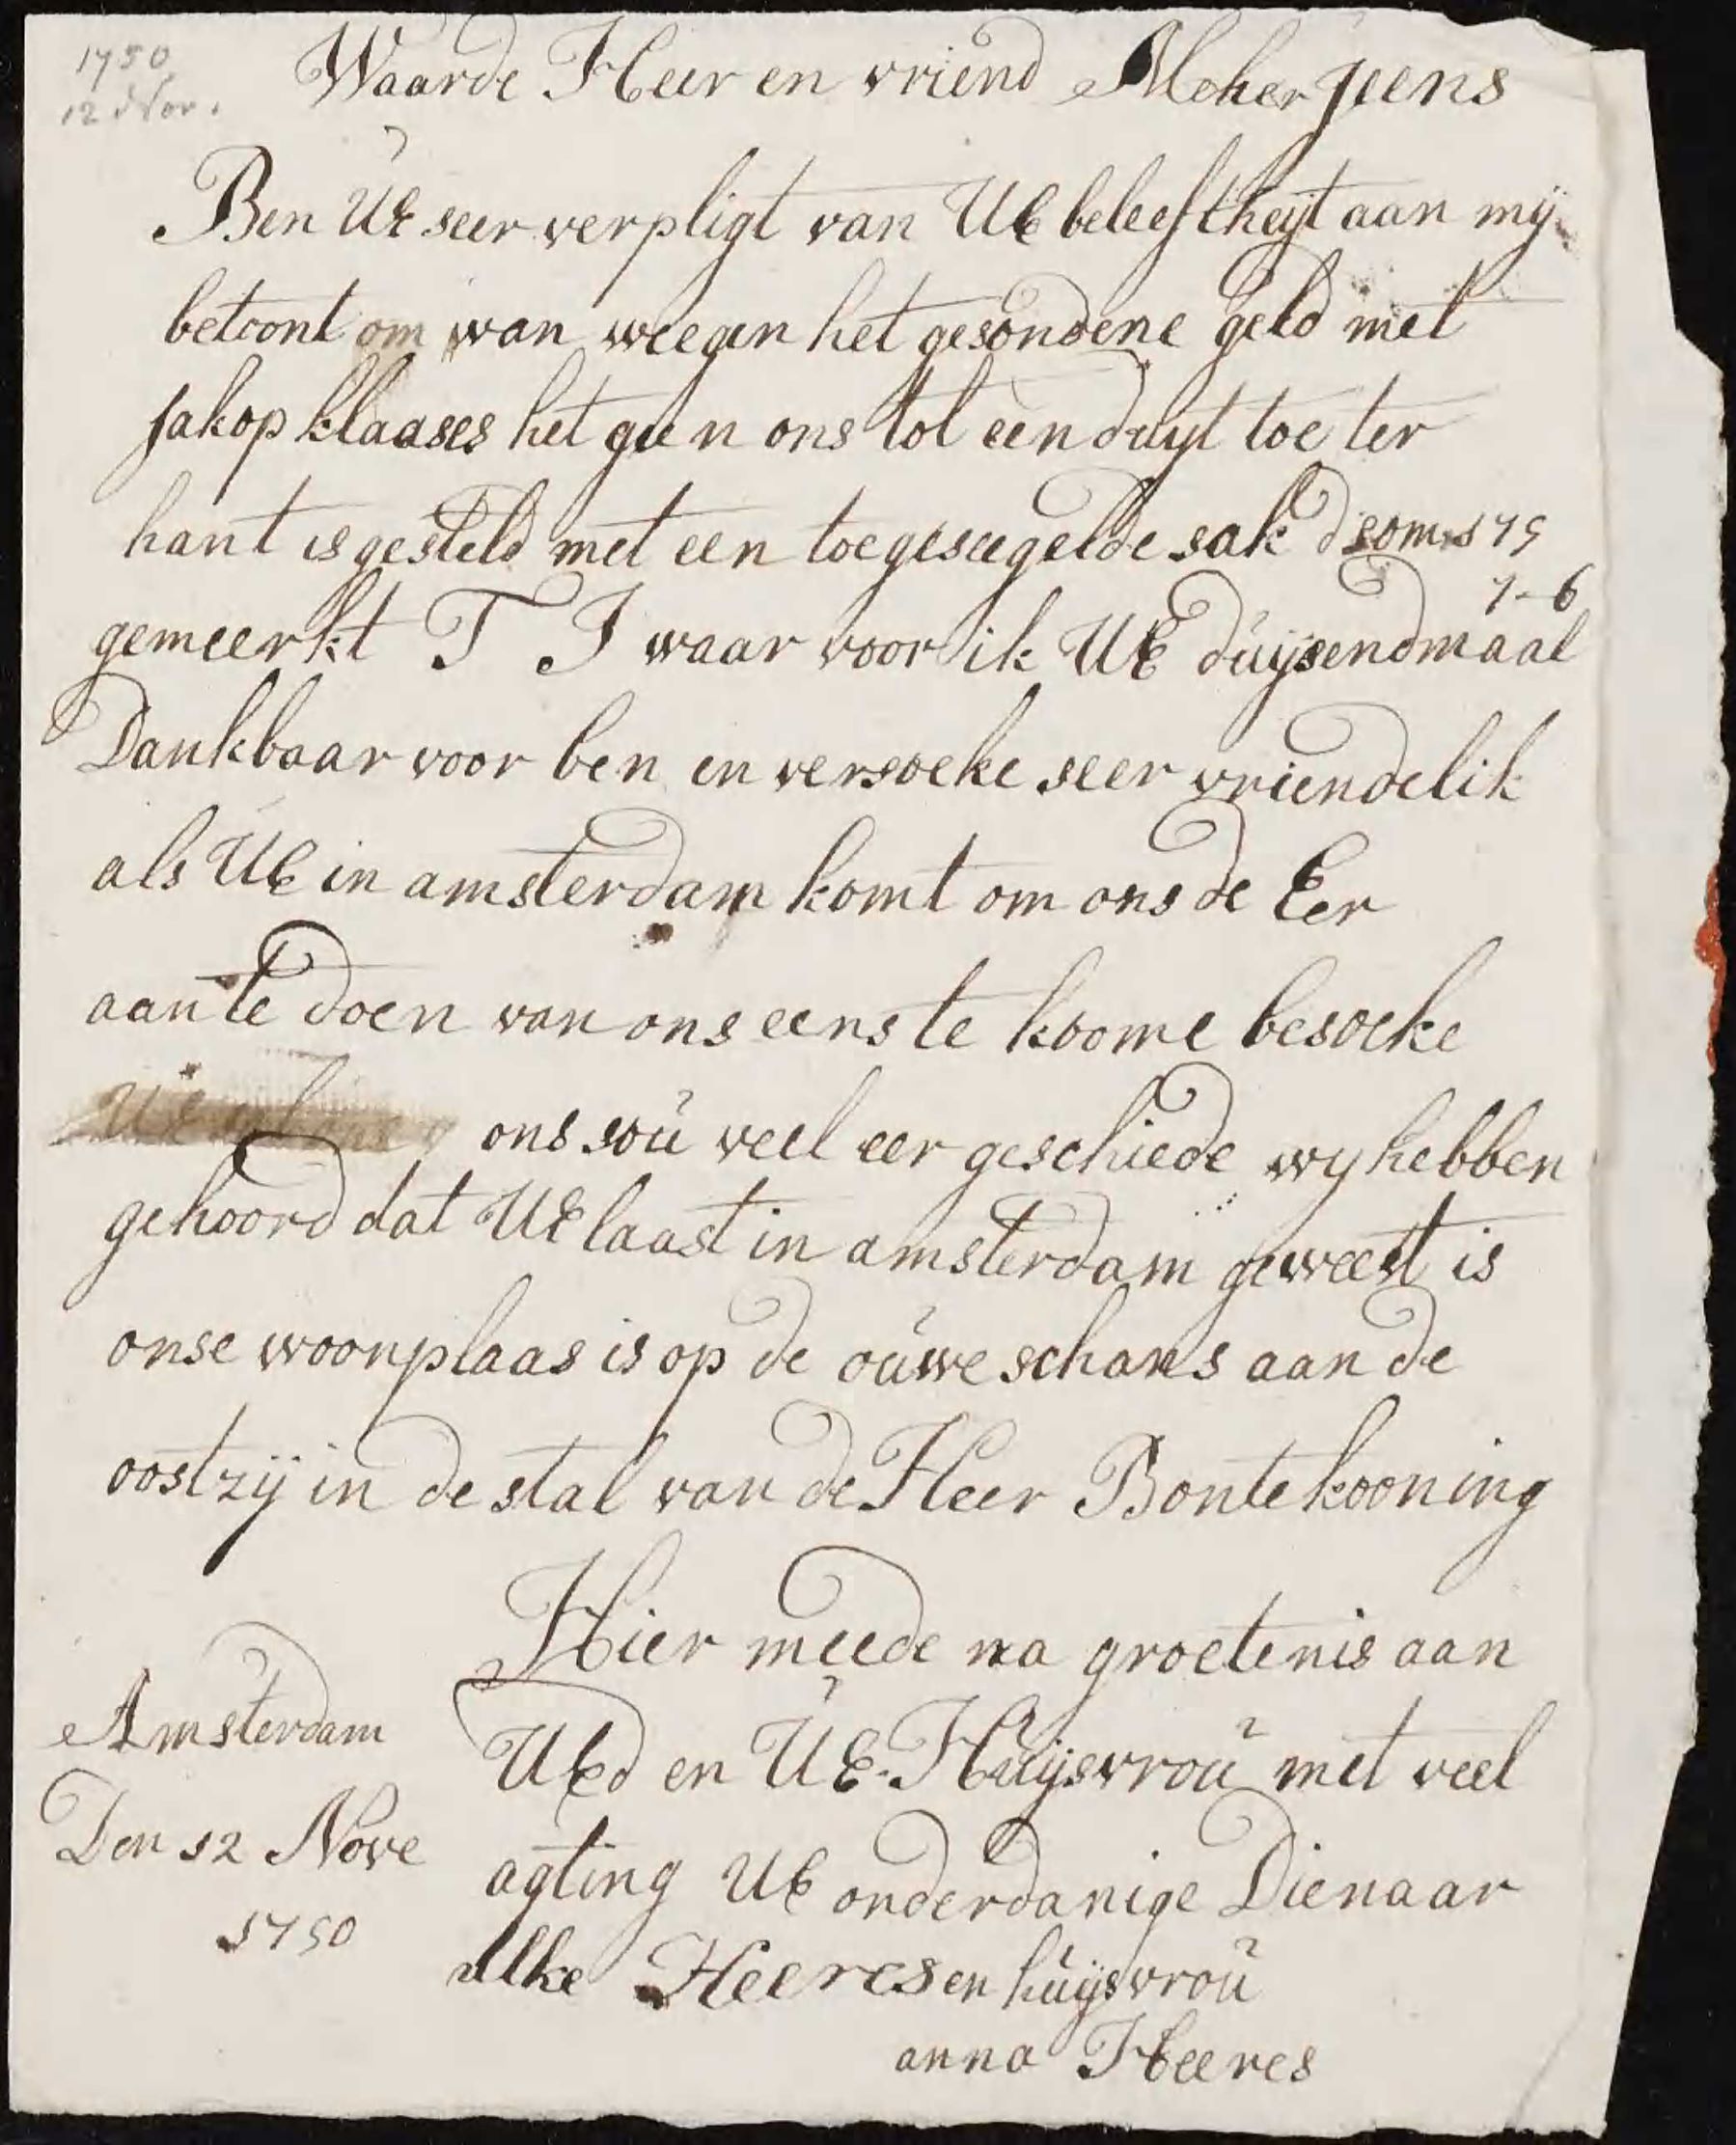 1750
12 Nov.
Waarde Heer en vriend Meherjeens
Ben UE seer verpligt van UE beleeftheijt aan mij
betoont om van weegen het gesondene geld met
jakop klaases het geen ons tot een duyt toe ter
hant is gesteld met een toegeseegelde sak d som 175
7-6
gemeerkt T J waar voor ik UE duijsendmaal
Dankbaar voor ben en versoeke seer vriendelik
als UE in amsterdam komt om ons de Eer
aan te doen van ons eens te koome besoeke
ons soú veel eer geschiede wy hebben
gehoord dat UE laast in amsterdam geweest is
onse woonplaas is op de oúwe schans aan de
oostzij in de stal van de Heer Bontekooning
Hier meede na groetenis aan
UEd en UE Huijsvroú met veel
agting UE onderdanige Dienaar
Heeres en huijsvroú
anna Heeres
Amsterdam
Den 12 Nove
1750